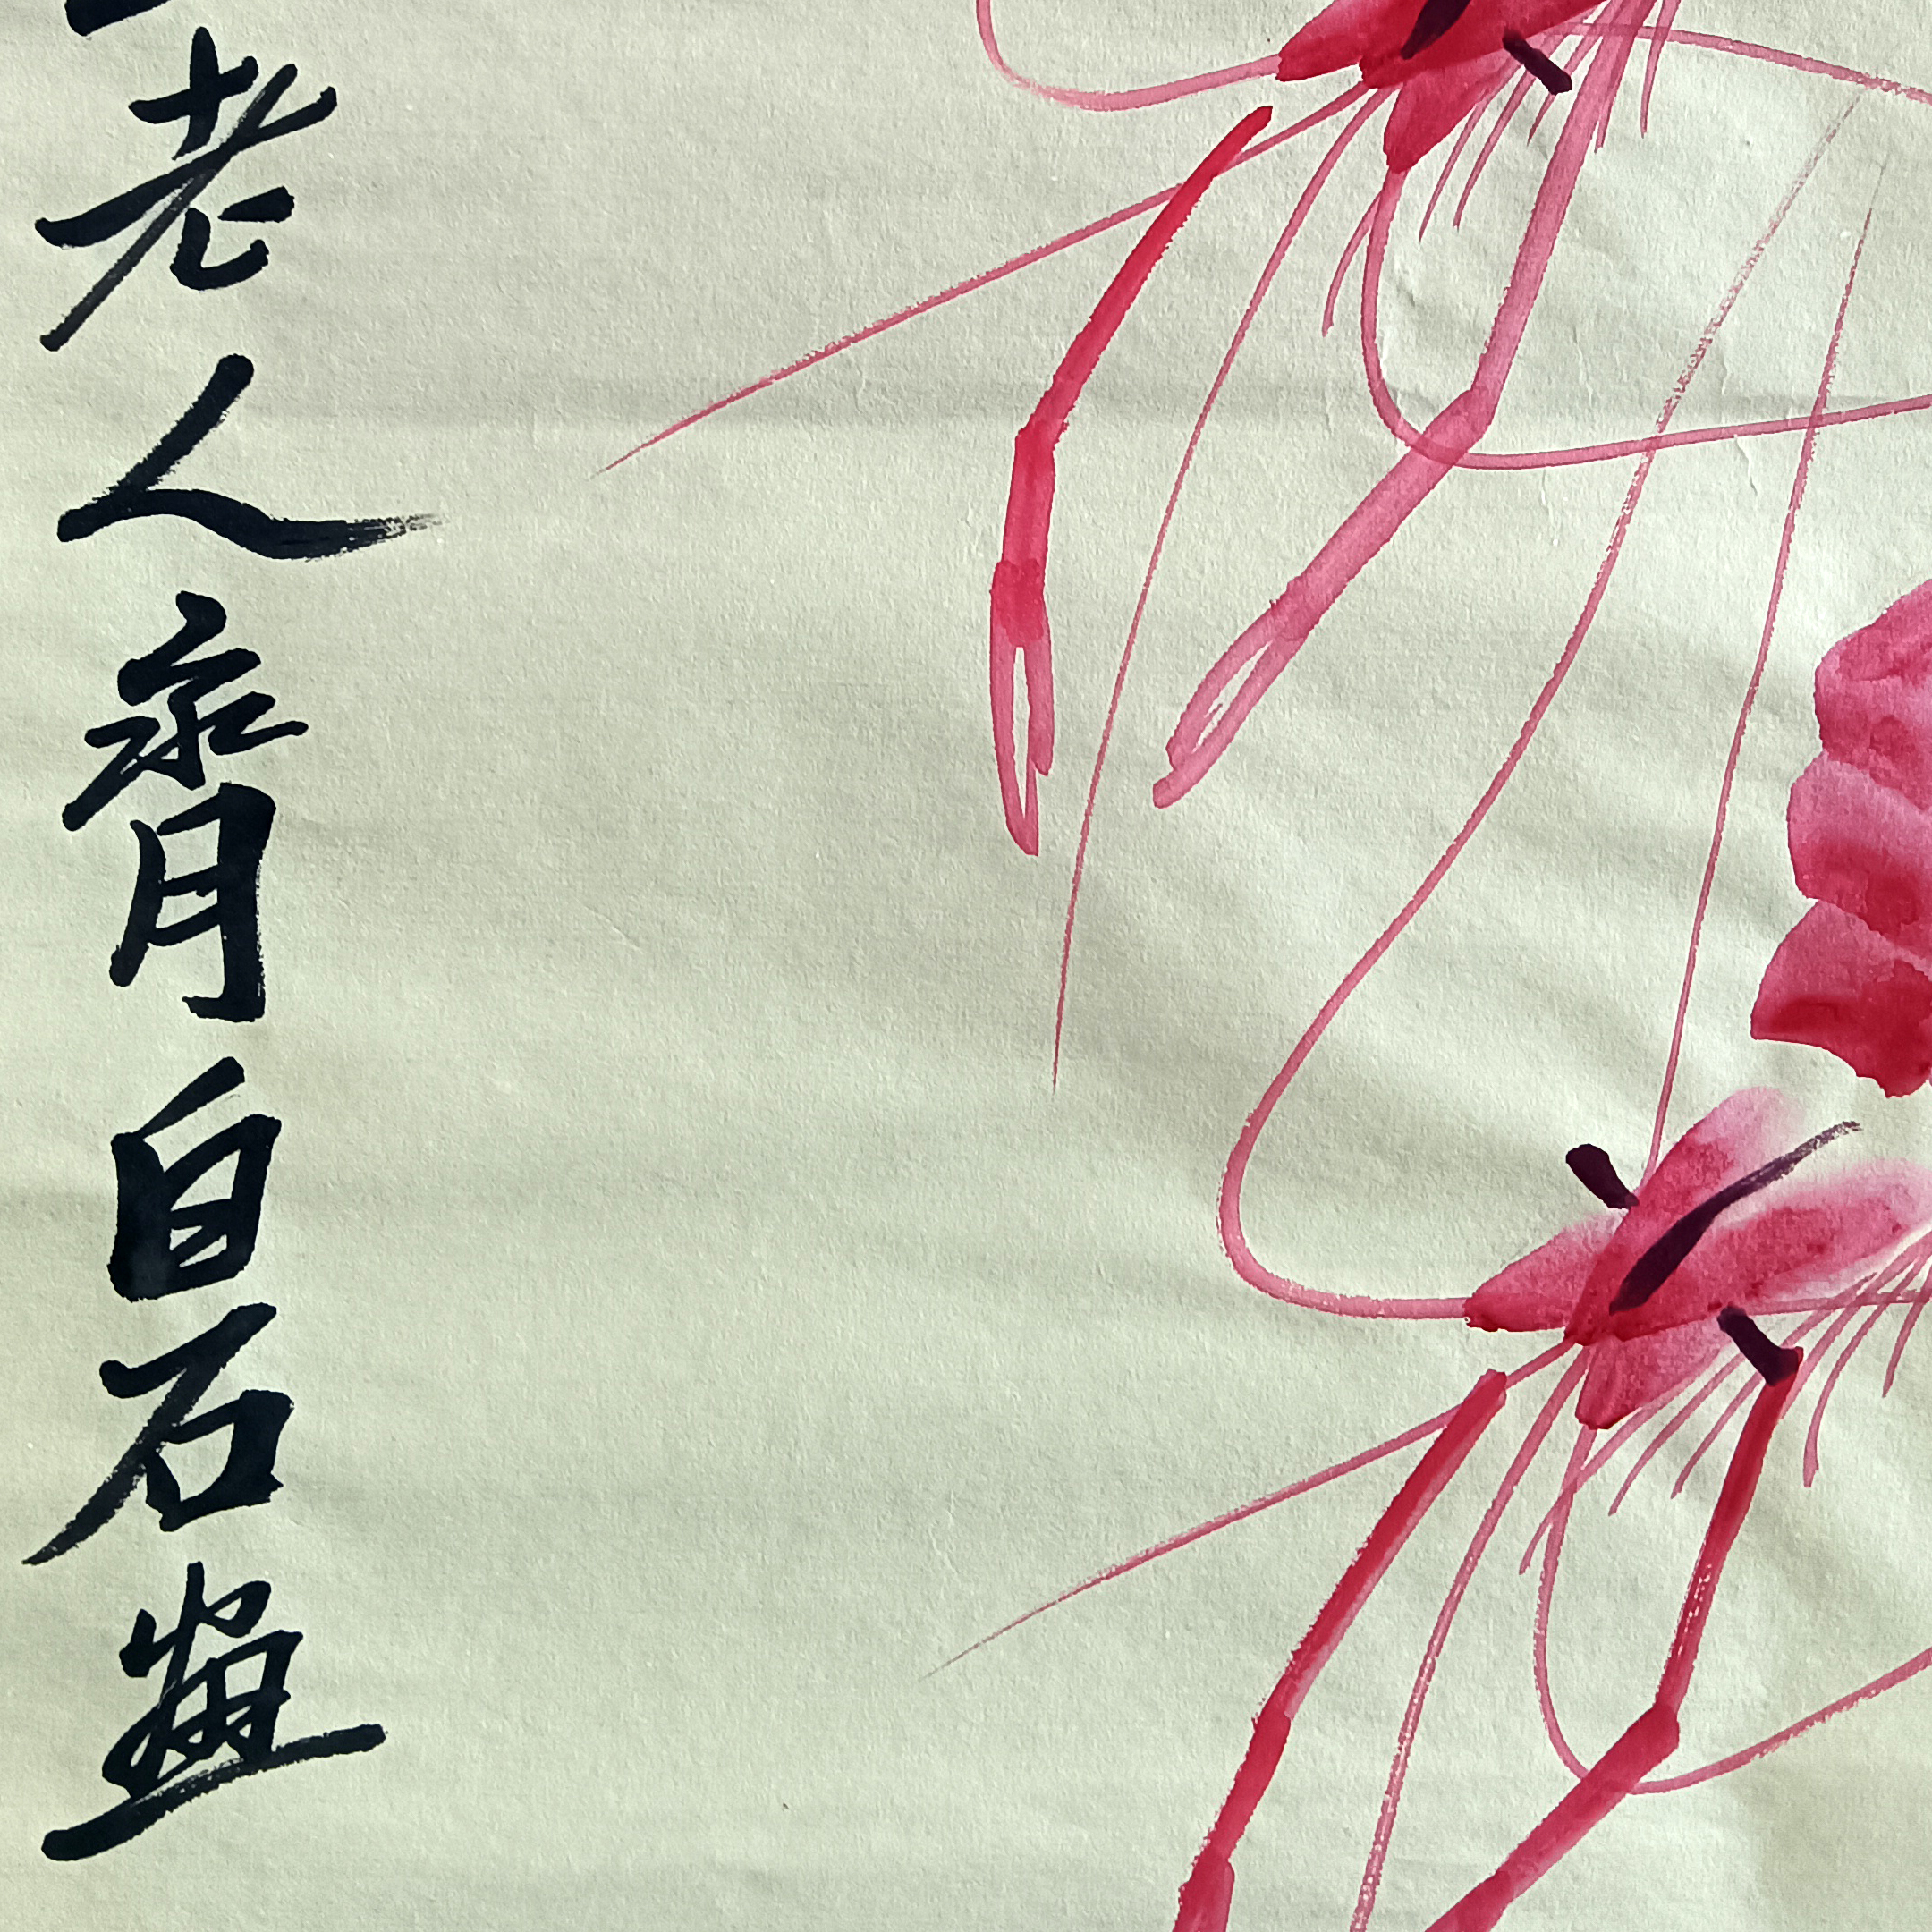 老人齊白石畫